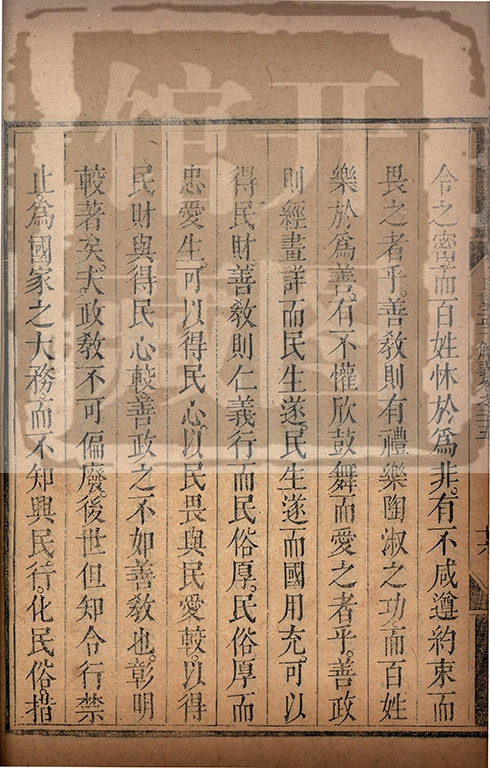 令之密而百姓怵於為非。有不咸遵約束而
畏之者乎。善教則有禮樂陶淑之功而百姓
樂於為善。有不懽欣鼓舞而愛之者乎。善政
則經畫詳而民生遂。民生遂而國用充。可以
得民財。善教則仁義行而民俗厚。民俗厚而
忠愛生。可以得民心。以民畏與民愛較。以得
民財與得民心較。善政之不如善教也。彰明
較著矣。夫政教不可偏廢。後世但知令行禁
止。為國家之大務。而不知興民行。化民俗。措